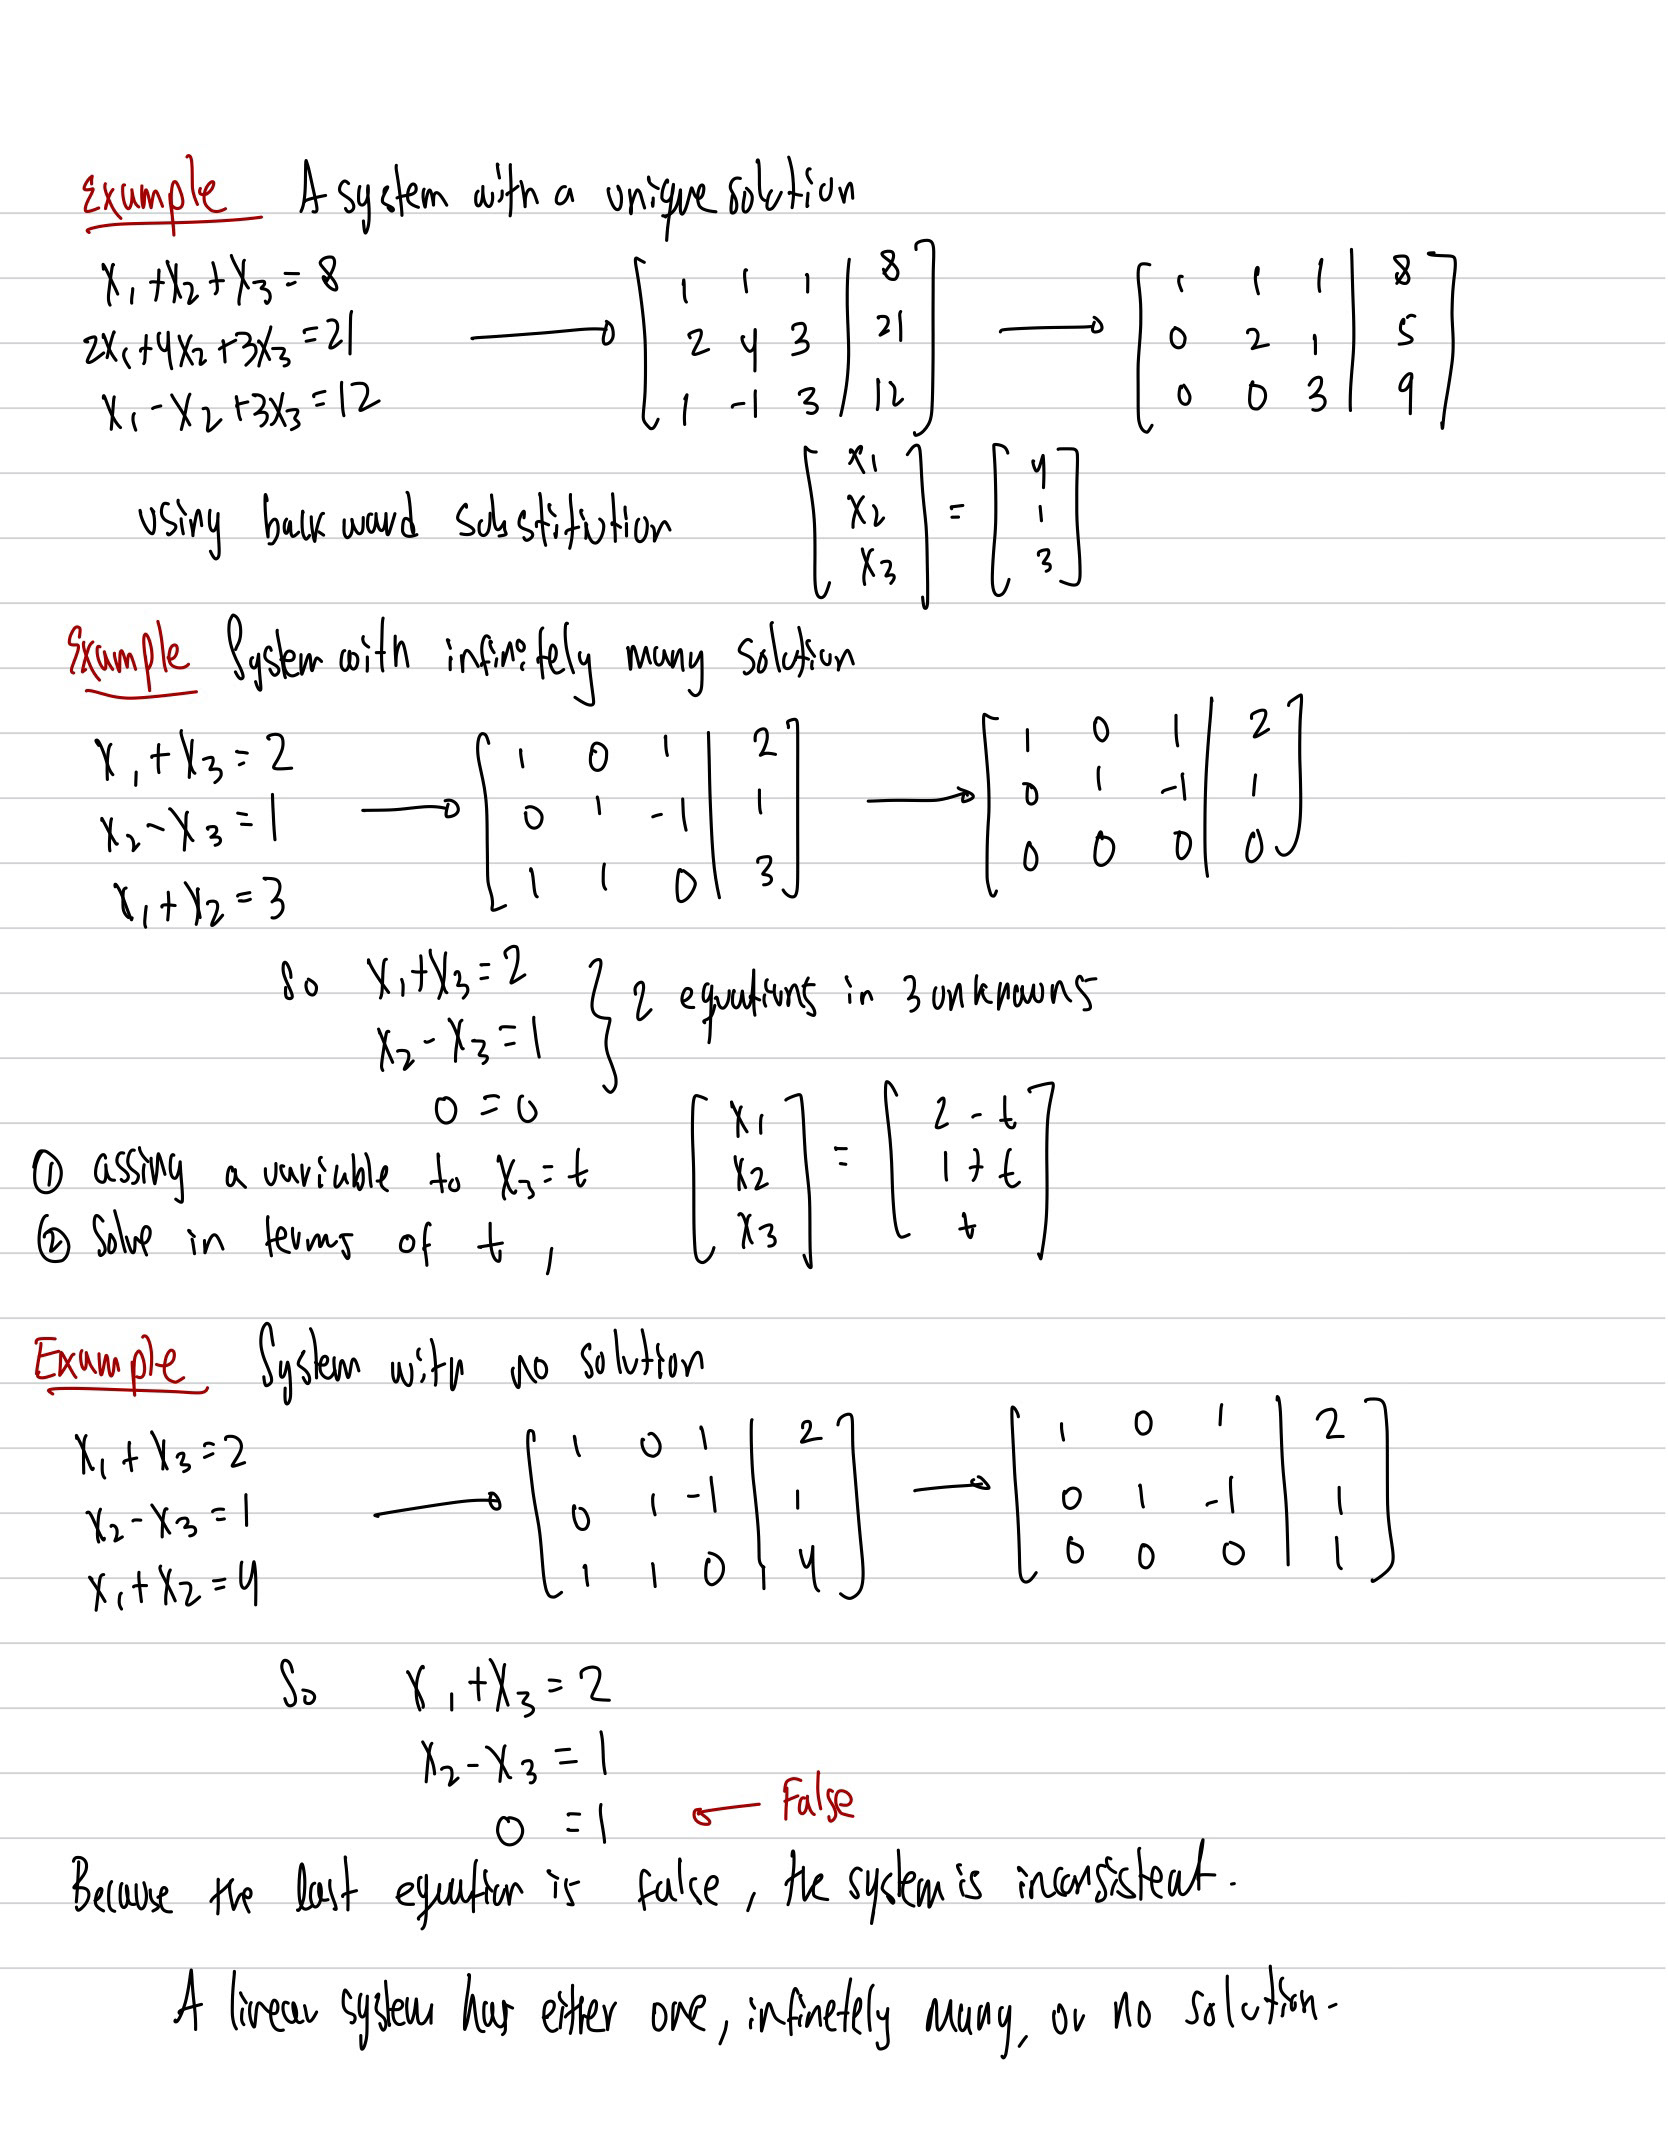 Example A system with a unique solution
x₁+x₂+x₃=8 → [1 1 1 | 8] → [1 1 1 | 8]
2x₁+4x₂+3x₃=21 [2 4 3 | 21] [0 2 1 | 5]
x₁-x₂+3x₃=12 [1 -1 3 | 12] [0 0 3 | 9]
using backward substitution [x₁ x₂ x₃] = [4 1 3]
Example System with infinitely many solution
x₁+x₃=2 → [1 0 1 | 2] → [1 0 1 | 2]
x₂-x₃=1 [0 1 -1 | 1] [0 1 -1 | 1]
x₁+x₂=3 [1 1 0 | 3] [0 0 0 | 0]
So x₁+x₃=2 } 2 equations in 3 unknowns
x₂-x₃=1
0=0
① assing a variable to x₃=t
② Solve in terms of t, [x₁ x₂ x₃] = [2-t 1+t t]
Example System with no solution
x₁+x₃=2 → [1 0 1 | 2] → [1 0 1 | 2]
x₂-x₃=1 [0 1 -1 | 1] [0 1 -1 | 1]
x₁+x₂=4 [1 1 0 | 4] [0 0 0 | 1]
So x₁+x₃=2
x₂-x₃=1
0=1 ← False
Because the last equation is false, the system is inconsistent.
A linear system has either one, infinetely many, or no solution.